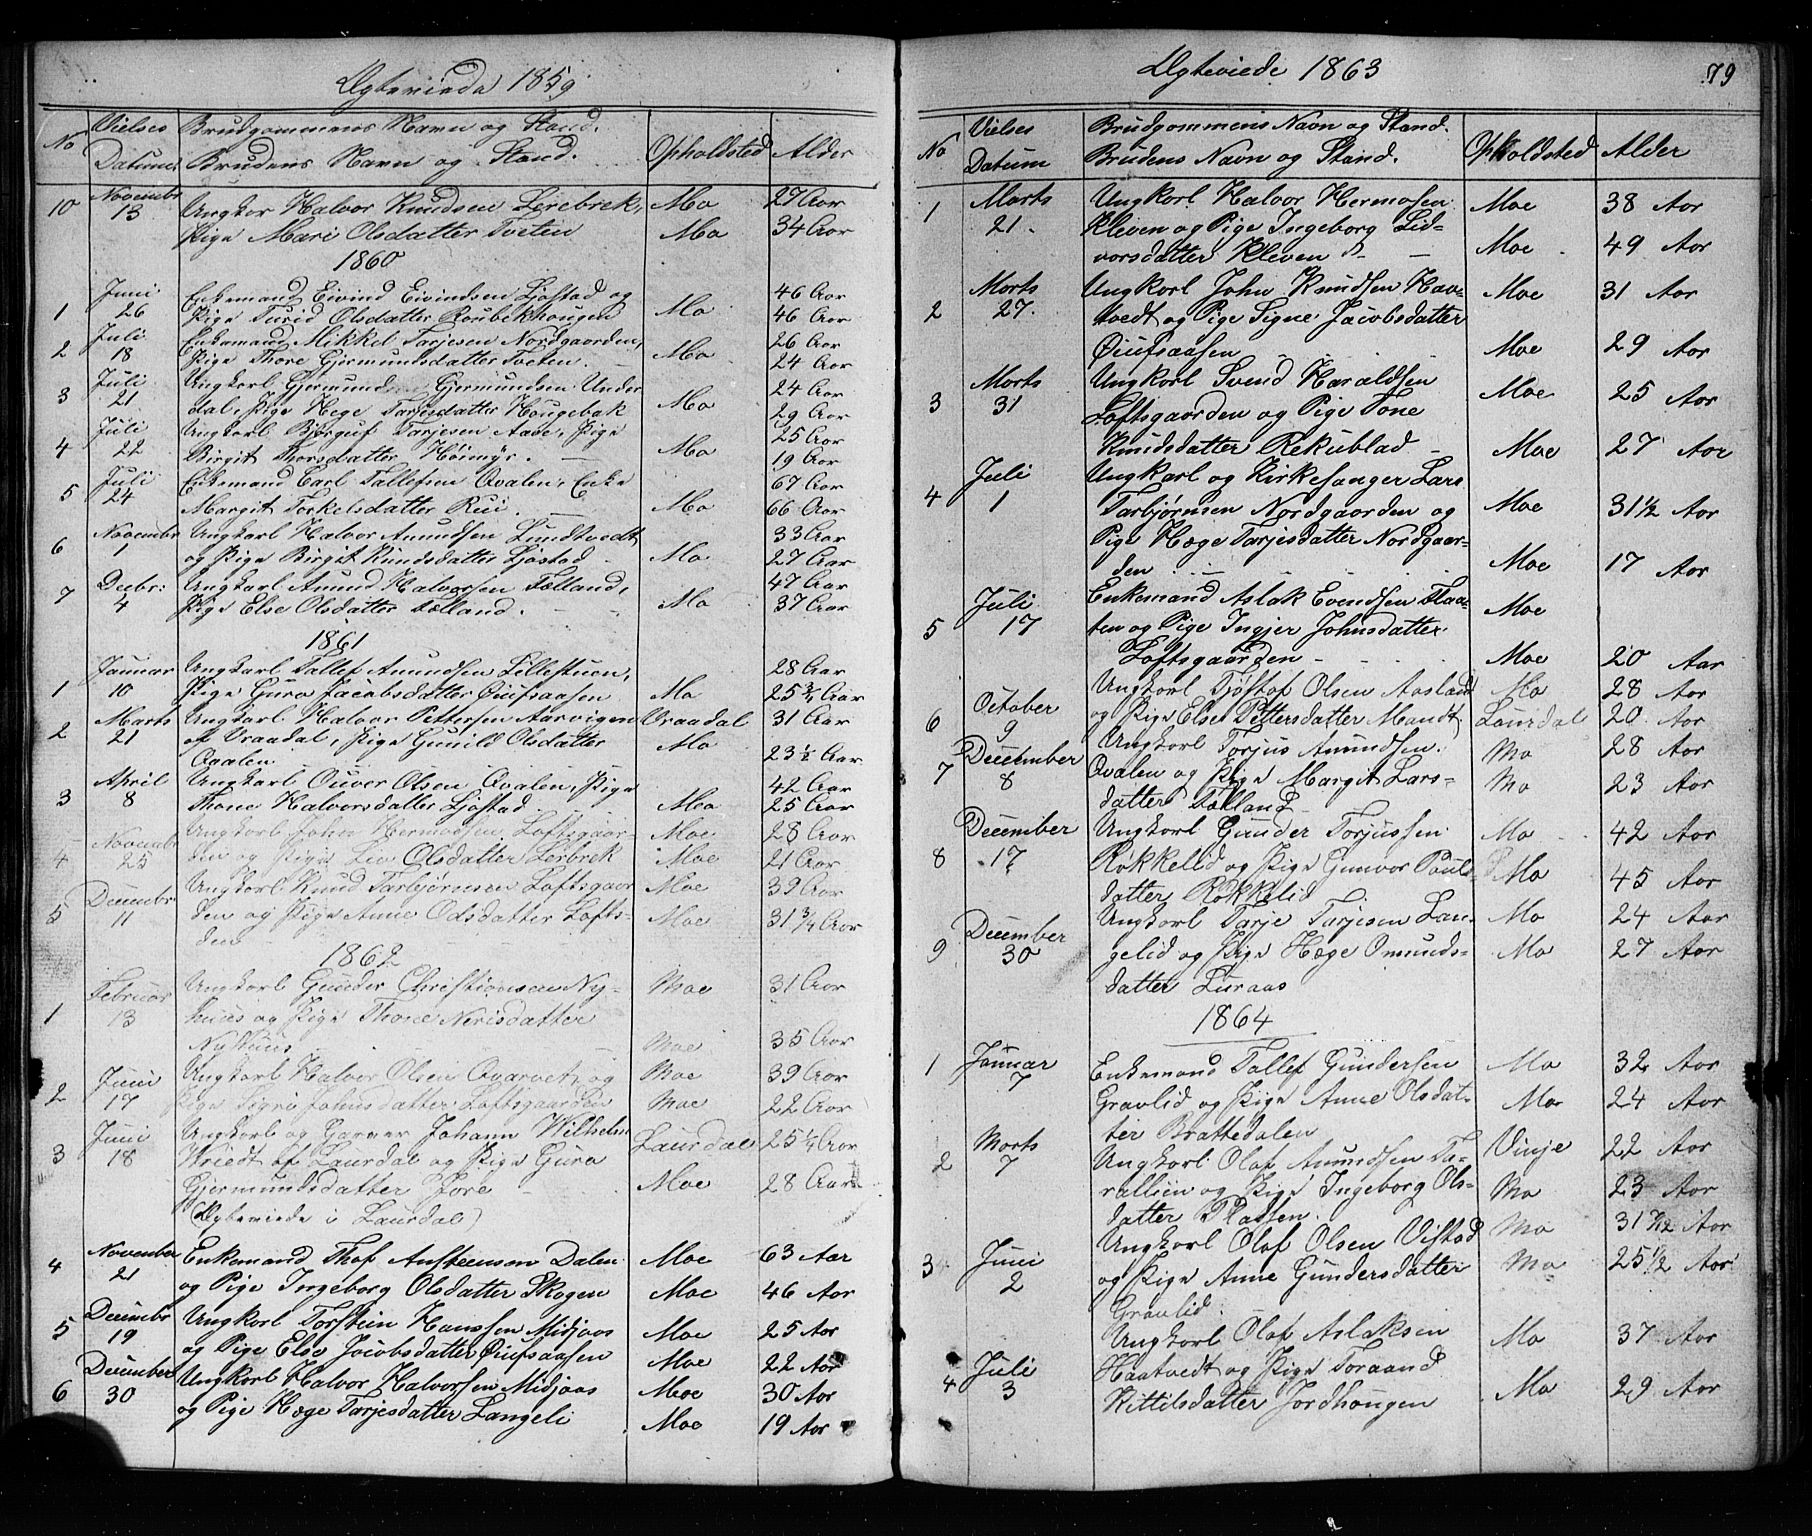 Ægteviede 1859
No Vielses Datum Brudgommens Navn og Stand. Brudens Navn og Stand. Opholdsted Alder
10 Novembr 13 Ungkar Halvor Knudsen Lerebrek, Mo 27 Aar
Pige Mari Olsdatter Tveten Mo 34 Aar
1860
1 Juni 26 Enkemand Eivind Eivindsen Ljøstad og 46 Aar
Pige Turid Olsdatter Roubekhougen Mo 46 Aar
2 Juli 18 Enkemand Mikkel Tarjesen Nordgaarden, 26 Aar
Pige Thore Gjermundsdatter Tveten. Mo 24 Aar
3 Juli 21 Ungkarl Gjermund Gjermundsen Under 24 Aar
dal, Pige Hege Tarjesdatter Hougebak Mo 29 Aar
4 Juli 22 Ungkarl Bjørguf Tarjesen Aase, Pige 25 Aar
Birgit Thorsdatter Høimyr. Mo 19 Aar
5 Juli 24 Enkemand Carl Tallefsen Qvalen, Enke 67 Aar
Margit Torkelsdatter Rui. Mo 66 Aar
6 Novembr 1 Ungkarl Halvor Amundsen Lundtvedt 33 Aar
og Pige Birgit Knudsdatter Ljøstad Mo 27 Aar
7 Decbr: 4 Ungkarl Amund Halvorsen Tælland, 47 Aar
Pige Else Olsdatter Tælland. Mo 37 Aar
1861
1 Januar 10 Ungkarl Tallef Amundsen Lillestuen, 28 Aar
Pige Guro Jacobsdatter Øiufsaasen Mo 25 3/4 Aar
2 Marts 21 Ungkarl Halvor Pettersen Aarvigen Vraadal 31 Aar
af Vraadal, Pige Gunild Olsdatter Mo 23 1/2 Aar
Qvalen
3 April 8 Ungkarl Ouver Olsen Qvalen, Pige 42 Aar
Thone Halvorsdatter Ljøstad Moe 25 Aar
4 Novembr 25 Ungkarl John Hermodsen Loftsgaar- Moe 28 Aar
den og Pige Liv Olsdatter Lerbrek Moe 21 Aar
5 Decembr 11 Ungkarl Knud Tarbjørnsen Loftsgaar Moe 39 Aar
den og Pige Anne Odsdatter Lofts- Moe 31 3/4 Aar
den
1862
1 Februar 13 Ungkarl Gunder Christiansen Ny- Moe 31 Aar
huus og Pige Thone Nerisdatter
Nyhuus Moe 35 Aar
2 Juni 17 Ungkarl Halvor Olsen Qvarvet, og Moe 39 Aar
Pige Sigri Johnsdatter Loftsgaarden Moe 22 Aar
3 Juni 18 Ungkarl og Garver Johann Wilhelm Laurdal 25 1/2 Aar
Wriedt af Laurdal og Pige Guro
Gjermundsdatter Jore Moe 28 Aar
(Ægteviede i Laurdal)
4 November 21 Enkemand Thof Austeensen Dalen Moe 63 Aar
og Pige Ingeborg Olsdatter Skogen Moe 46 Aar
5 Decembr 19 Ungkarl Torstein Hanssen Midjaas Moe 25 Aar
og Pige Else Jacobsdatter Øiufsaasen Moe 22 Aar
6 December 30 Ungkarl Halvor Halvorsen Midjaas Moe 30 Aar
og Pige Hæge Tarjesdatter Langeli Moe 19 Aar
Ægteviede 1863 79
No Vielses Datum Brudgommens Navn og Stand. Brudens Navn og Stand. Opholdsted Alder
1 Marts 21. Ungkarl Halvor Hermosen Moe 38 Aar
Kleven og Pige Ingeborg Lid-
vorsdatter Kleven Moe 49 Aar
2 Marts 27. Ungkarl John Knudsen Hav- Moe 31 Aar
tvedt og Pige Signe Jacobsdatter
Øiufsaasen Moe 29 Aar
3 Marts 31 Ungkarl Svend Haraldsen Moe 25 Aar
Loftsgaarden og Pige Tone
Knudsdatter Rekublad Moe 27 Aar
4 Juli 1 Ungkarl og Kirkesanger Lars
Tarbjørnsen Nordgaarden og Moe 31 1/2 Aar
Pige Hæge Tarjesdatter Nordgaar-
den Moe 17 Aar
5 Juli 17 Enkemand Aslak Evendsen Flaa- Moe
ten og Pige Ingjer Johnsdatter
Loftsgaarden Moe 20 Aar
6 October 9 Ungkarl Tjøstof Olsen Aasland Mo 28 Aar
og Pige Else Pettersdatter Mandt Laurdal 20 Aar
7 December 8 Ungkarl Torjus Amundsen Mo 28 Aar
Qvalen og Pige Margit Lars- Mo 23 Aar
datter Tælland
8 December 17 Ungkarl Gunder Torjussen Mo 42 Aar
Røkkelid og Pige Gunvor Pouls- Mo 45 Aar
datter Røkkelid
9 December 30 Ungkarl Tarje Tarjesen Lan- Mo 24 Aar
gelid og Pige Hæge Omunds- Mo 27 Aar
datter Luraas
1864
1 Januar 7 Enkemand Tallef Gundersen Mo 32 Aar
Gravlid og Pige Anne Olsdat- Mo 24 Aar
ter Brattedalen
2 Marts 7 Ungkarl Olaf Amundsen Ta- Vinje 22 Aar
rallien og Pige Ingeborg Ols- Mo 23 Aar
datter Pladsen.
3 Juni 2 Ungkarl Olaf Olsen Vistad Mo 31 7/12 Aar
og Pige Anne Gundersdatter Mo 25 1/2 Aar
Gravlid
4 Juli 3 Ungkarl Olaf Aslaksen Mo 37 Aar
Haatvedt og Pige Toraand
Kittilsdatter Jordhougen Mo 29 Aar